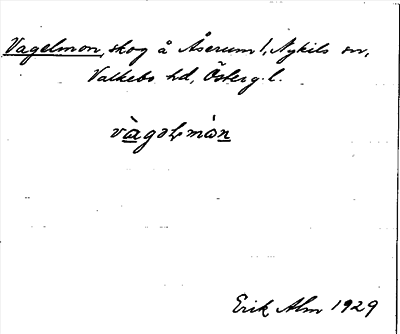 Vagelmon, skog å Åserum 1, Nykils sn,
Valkebo hd, Österg. l.
vàgəlmòn
Erik Alm 1929